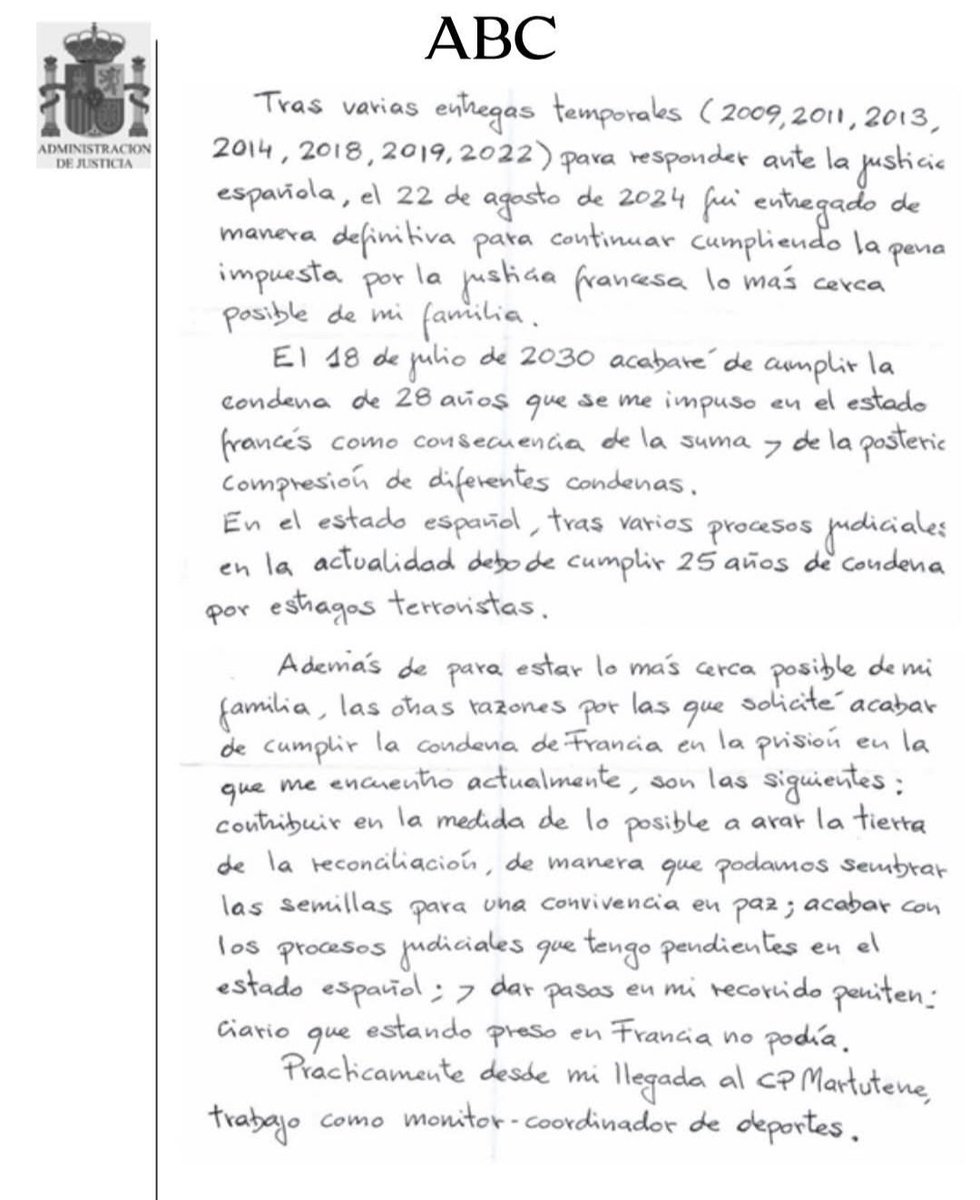 ABC
ADMINISTRACION
DE JUSTICIA
Tras varias entregas temporales (2009, 2011, 2013,
2014, 2018, 2019, 2022) para responder ante la justicia
española, el 22 de agosto de 2024 fui entregado de
manera definitiva para continuar cumpliendo la pena
impuesta por la justicia francesa lo más cerca
posible de mi familia.
El 18 de julio de 2030 acabaré de cumplir la
condena de 28 años que se me impuso en el estado
francés como consecuencia de la suma y de la posteric
compresión de diferentes condenas.
En el estado español, tras varios procesos judiciales
en la actualidad debo de cumplir 25 años de condena
por estragos terroristas.
Además de para estar lo más cerca posible de mi
familia, las otras razones por las que solicité acabar
de cumplir la condena de Francia en la prisión en la
que me encuentro actualmente, son las siguientes:
contribuir en la medida de lo posible a arar la tierra
de la reconciliación, de manera que podamos sembrar
las semillas para una convivencia en paz; acabar con
los procesos judiciales que tengo pendientes en el
estado español; y dar pasos en mi recorrido peniten-
ciario que estando preso en Francia no podía.
Practicamente desde mi llegada al CP Martutene,
trabajo como monitor-coordinador de deportes.